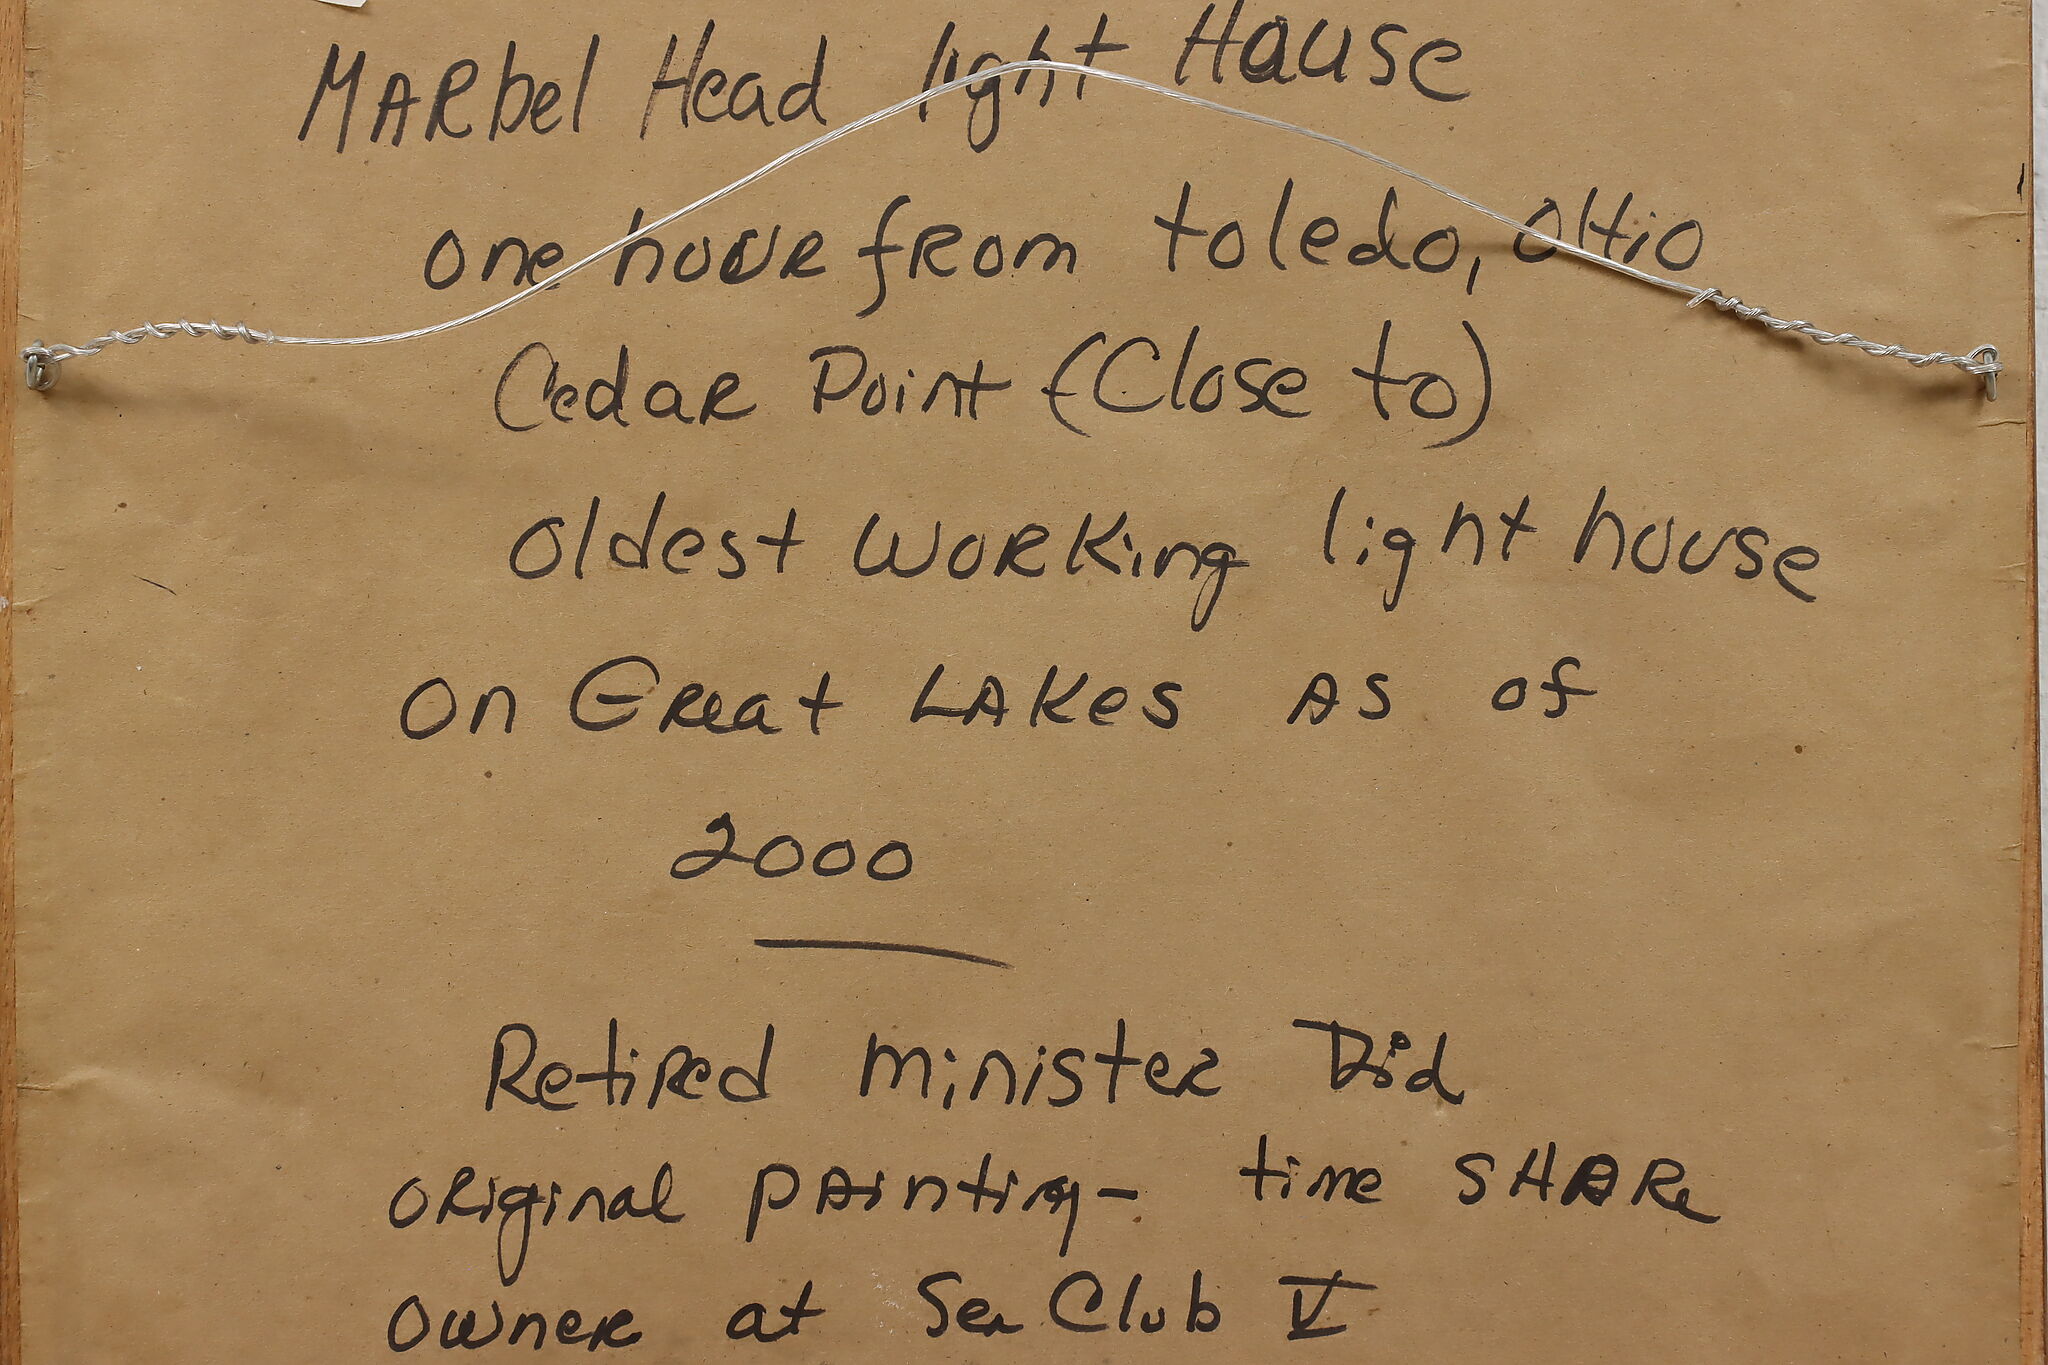 MARbel Head light House
one hour from toledo, OHio
Cedar Point (Close to)
oldest WORKing light house
on Great LAKes AS of
2000
Retired minister Did
original painting- time SHARe
owner at Sea Club V